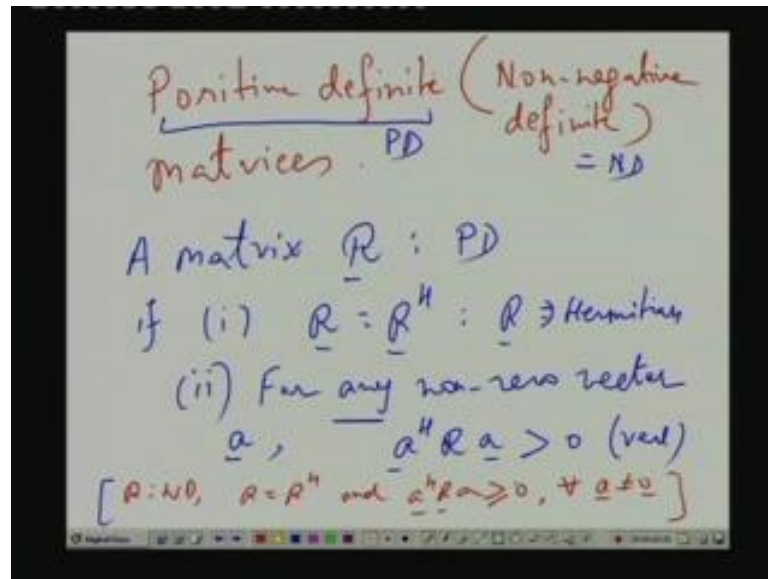 Positive definite (Non-negative
definite)
matrices. PD = ND
A matrix R : PD
if (i) R = R^H : R ∋ Hermitian
(ii) For any non-zero vector
a, a^H R a > 0 (real)
[R:ND, R = R^H and a^H R a ≥ 0, ∀ a ≠ 0]